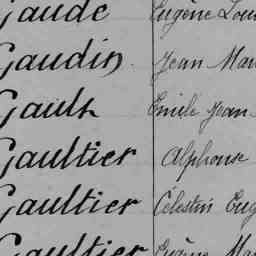 Gaude Eugène Lou
Gaudin Jean Mar
Gault Emile Jean
Gaultier Alphonse
Gaultier Célestin Eug
Gaultier Eugène Mar